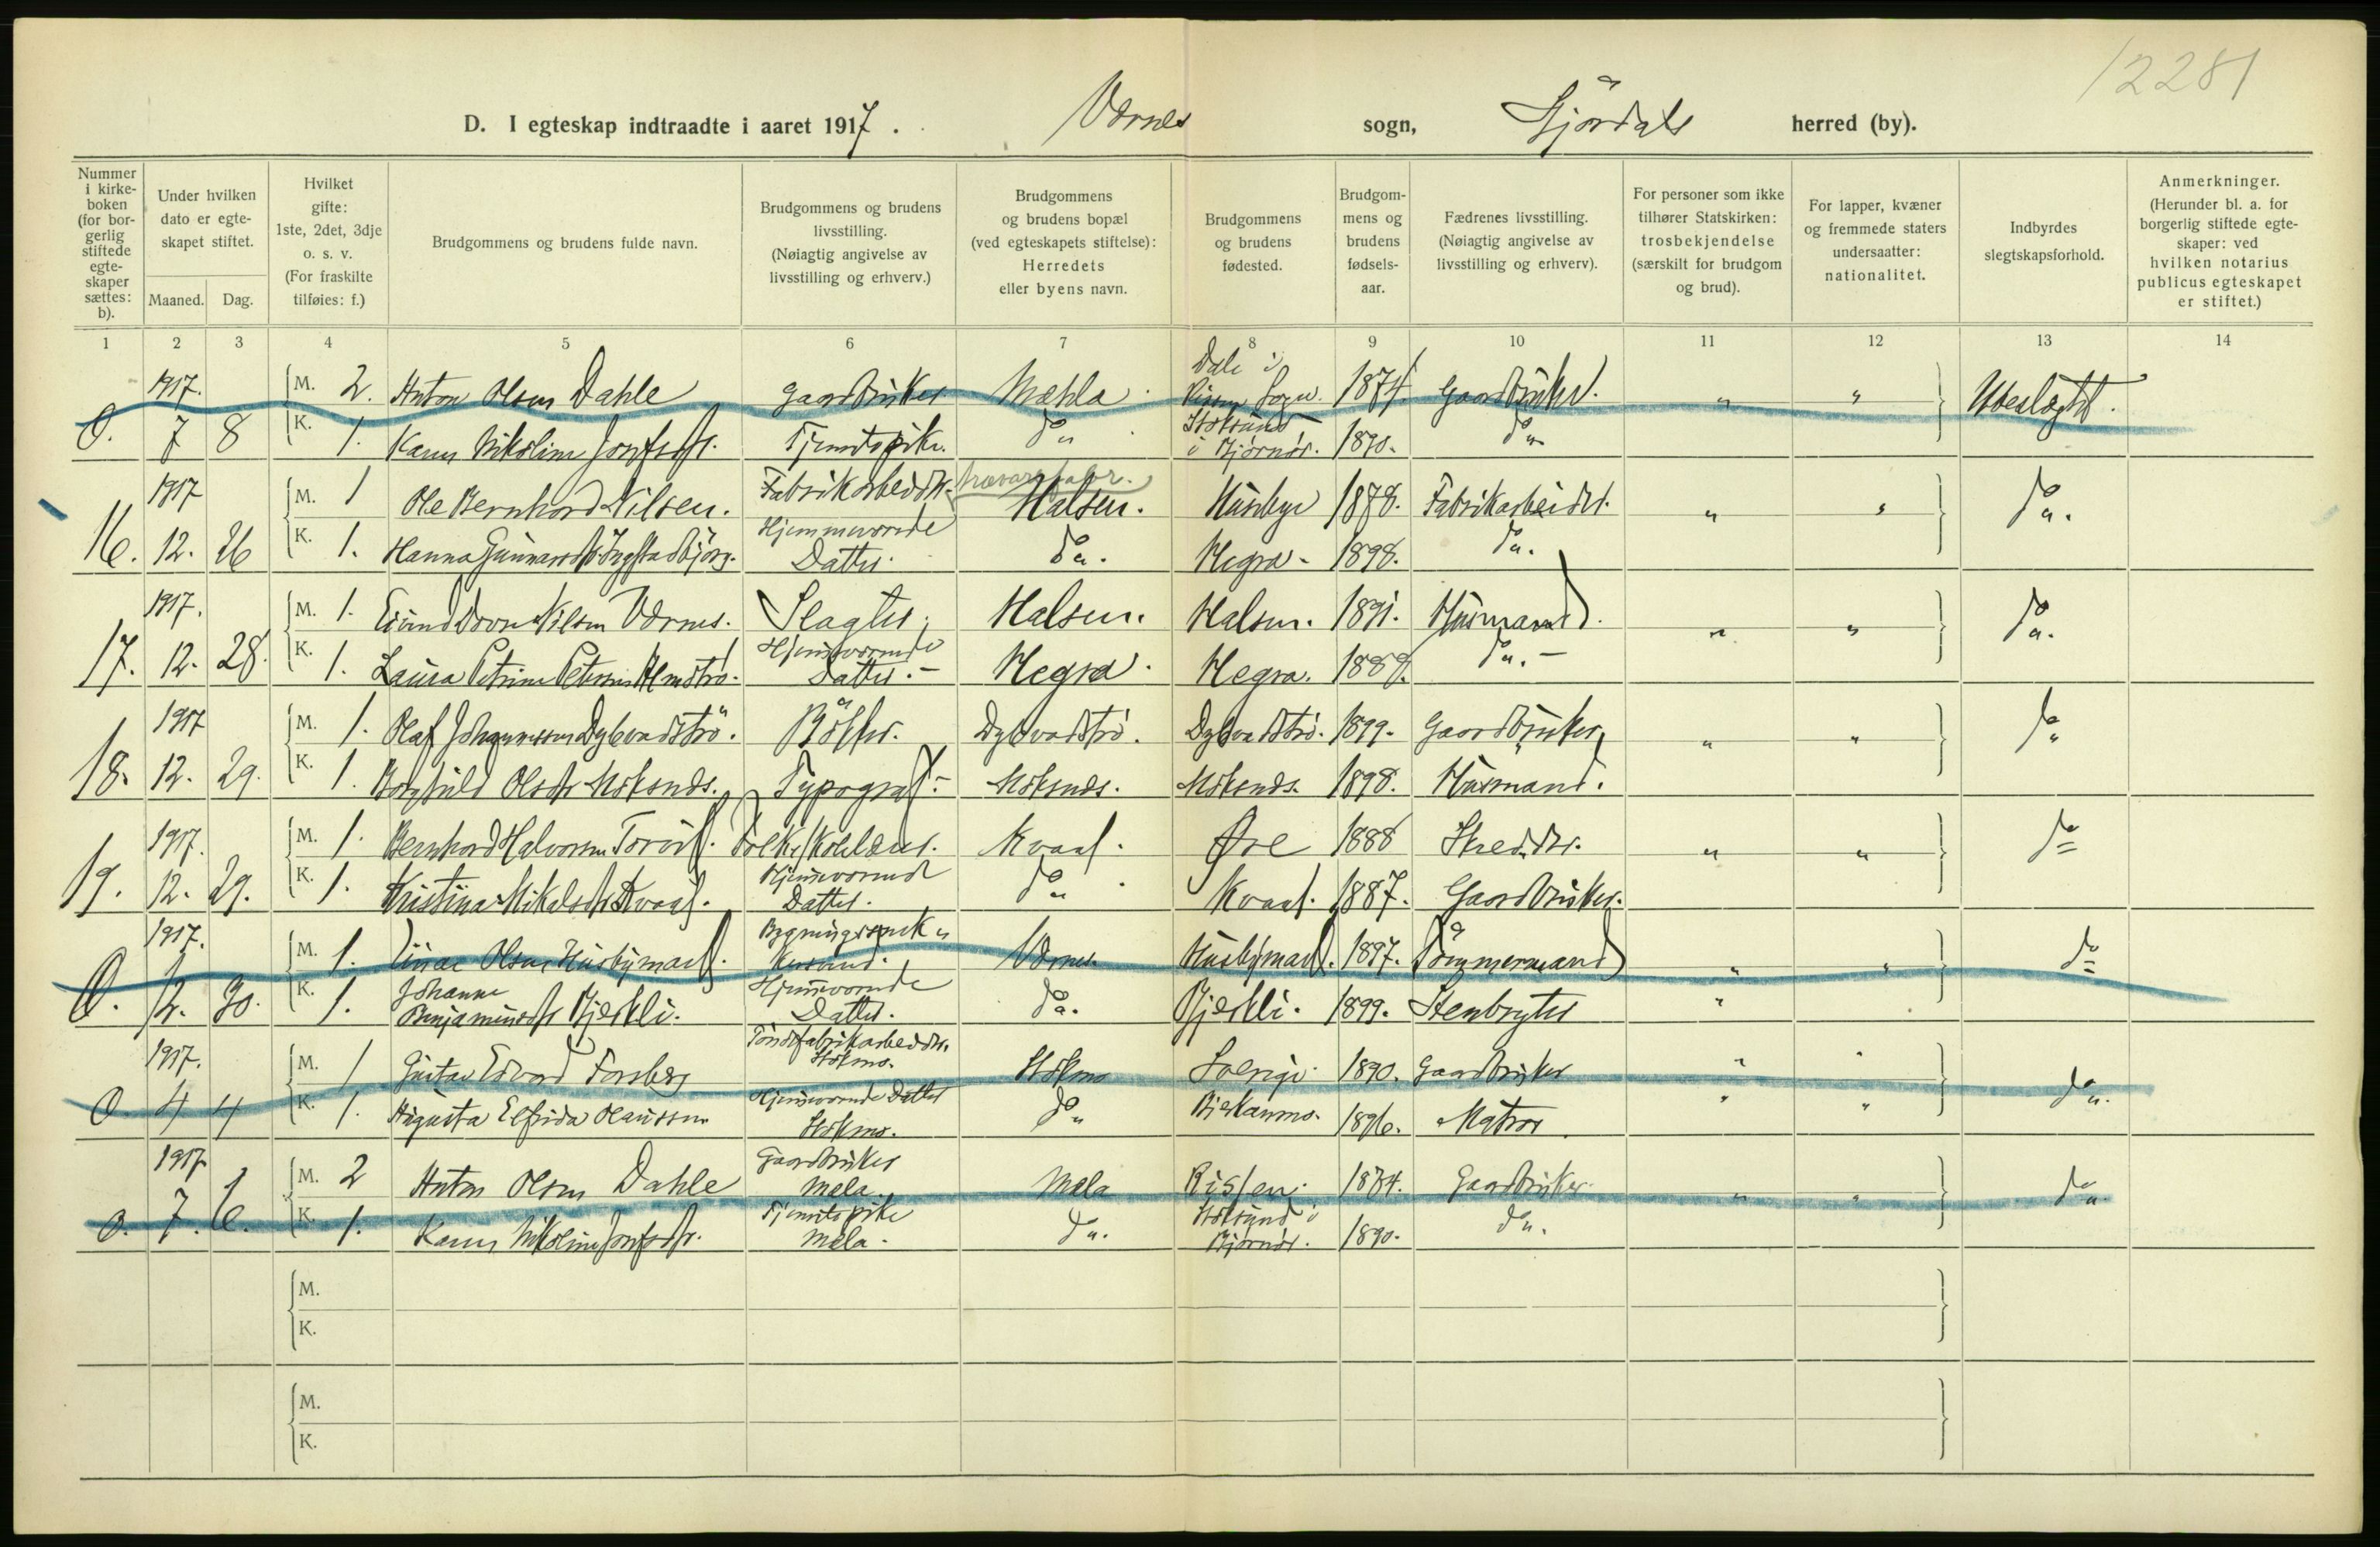 12281
D. I egteskap indtraadte i aaret 1917. Værnes sogn, Stjørdals herred (by).
Nummer i kirkeboken (for borgerlig stiftede egteskaper sættes: b).
Under hvilken dato er egteskapet stiftet.
Maaned. Dag.
Hvilket gifte: 1ste, 2det, 3dje o. s. v. (For fraskilte tilføies: f.)
Brudgommens og brudens fulde navn.
Brudgommens og brudens livsstilling. (Nøiagtig angivelse av livsstilling og erhverv.)
Brudgommens og brudens bopæl (ved egteskapets stiftelse): Herredets eller byens navn.
Brudgommens og brudens fødested.
Brudgommens og brudens fødselsaar.
Fædrenes livsstilling. (Nøiagtig angivelse av livsstilling og erhverv).
For personer som ikke tilhører Statskirken: trosbekjendelse (særskilt for brudgom og brud).
For lapper, kvæner og fremmede staters undersaatter: nationalitet.
Indbyrdes slegtskapsforhold.
Anmerkninger. (Herunder bl. a. for borgerlig stiftede egteskaper: ved hvilken notarius publicus egteskapet er stiftet.)
1 2 3 4 5 6 7 8 9 10 11 12 13 14
1917. M. 2. Anton Olsen Dahle Gaardbruker Mæhla Dale i Rissen Sogn. 1874. Gaardbruker. " " Ubeslægtet.
O. 7 8 K. 1. Karen Nikoline Josefsdtr. Tjenestepike. do Stoksund i Bjørnør. 1890. do
1917 M. 1 Ole Bernhard Nilsen. Fabrikarbeider. trævarefabr. Halsen. Husbye 1878. Fabrikarbeider. " " do.
16. 12. 26 K. 1. Hanna Gunnarsdtr Ingstadbjørg. Hjemmeværende Datter. do. Hegra. 1898. do.
1917. M. 1. Nilsen Værnes. Slagter. Halsen. Halsen. 1891. Husmand. " " do.
17. 12. 28. K. 1. Laura Petrine Hjemmeværende Datter. Hegra. Hegra. 1889. do.
1917 M. 1. Olaf Johannessen Dybvadstrø. Bødker. Dybvadstrø. Dybvadstrø. 1899. Gaardbruker, " " do
18. 12. 29. K. 1. Borghild Olsdtr Moksnes. Typograf. Moksnes. Moksnes. 1898. Husmand.
1917. M. 1. Bernhard Halvorsen Folkeskolelærer. Kvaal. Øre 1888 Skredder. " " do
19. 12. 29. K. 1. Kristina Mikalsdtr Kvaal. Hjemmeværende Datter. do Kvaal. 1887. Gaardbruker.
1917. M. 1. Einar Olsen Husbymark. Værnes Husbymark. 1897. Tømmermand " " do
O. 12. 30. K. 1. Johanne Benjaminsdtr Bjerkli. Hjemmeværende Datter. do. Bjerkli. 1899. Stenbryter "
1917. M. 1 Gustav Edvard Forsberg Tøndefabrikarbeider. Stokmo. Stokmo Sverige. 1890. Gaardbruker " " do.
O. 4 4 K. 1. Augusta Elfrida Olaussen Hjemmeværende Datter Stokmo. do 1896. Matros " "
1917 M. 2 Anton Olsen Dahle Gaardbruker Mæla. Mæla Rissen. 1874. Gaardbruker. " " do.
O. 7. 6. K. 1. Karen Nikoline Josefsdtr. Tjenestepike Mæla. do. Stoksund i Bjørnør. 1890. do.
M.
K.
M.
K.